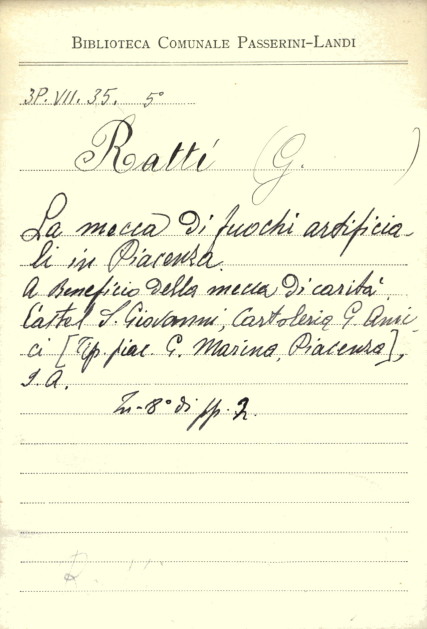 BIBLIOTECA COMUNALE PASSERINI-LANDI
3P. VII. 35. 5°
Ratti (G. )
La mecca di fuochi artificia-
li in Piacenza.
A Beneficio della mecca di carità
Castel S. Giovanni, Cartoleria G. Ami-
ci [Tip. piac. G. Marina, Piacenza],
s. a.
In-8° di pp. 2.